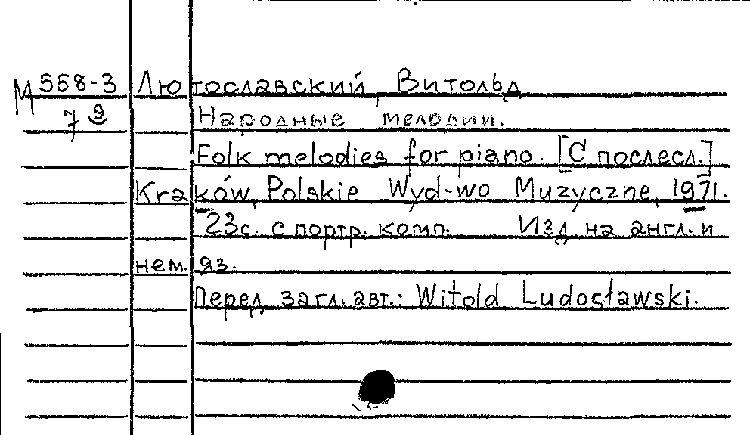 М 558-3 Лютославский, Витольд
7 Народные мелодии.
Folk melodies for piano. [С послесл.]
Kraków, Polskie Wyd-wo Muzyczne, 1971.
23с. с портр. комп. Изд. на англ. и
нем. яз.
Перед загл. авт.: Witold Ludosławski.